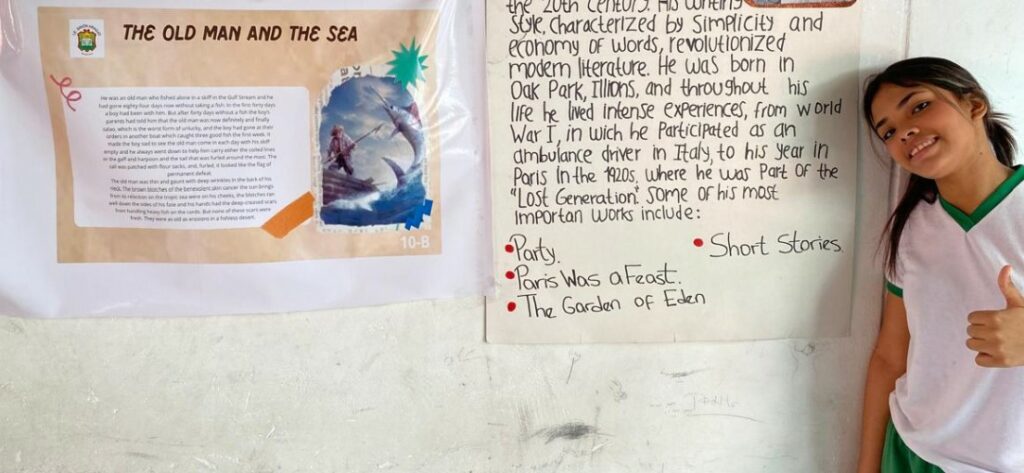 THE OLD MAN AND THE SEA
He was an old man who fished alone in a skiff in the Gulf Stream and he
had gone eighty-four days now without taking a fish. In the first forty days
a boy had been with him. But after forty days without a fish the boy's
parents had told him that the old man was now definitely and finally
salao, which is the worst form of unlucky, and the boy had gone at their
orders in another boat which caught three good fish the first week. It
made the boy sad to see the old man come in each day with his skiff
empty and he always went down to help him carry either the coiled lines
or the gaff and harpoon and the sail that was furled around the mast. The
sail was patched with flour sacks, and, furled, it looked like the flag of
permanent defeat.
The old man was thin and gaunt with deep wrinkles in the back of his
neck. The brown blotches of the benevolent skin cancer the sun brings
from its reflection on the tropic sea were on his cheeks. the blotches ran
well down the sides of his face and his hands had the deep-creased scars
from handling heavy fish on the cords. But none of these scars were
fresh. They were as old as erosions in a fishless desert.
10-B
the 20th century. His
style, characterized by simplicity and
economy of words, revolutionized
modern literature. He was born in
Oak Park, Illions, and throughout his
life he lived intense experiences, from world
War I, in wich he participated as an
ambulance driver in Italy, to his year in
Paris in the 1920s, where he was Part of the
"Lost Generation". Some of his most
importan works include:
Party.
Short Stories.
Paris Was a Feast.
The Garden of Eden